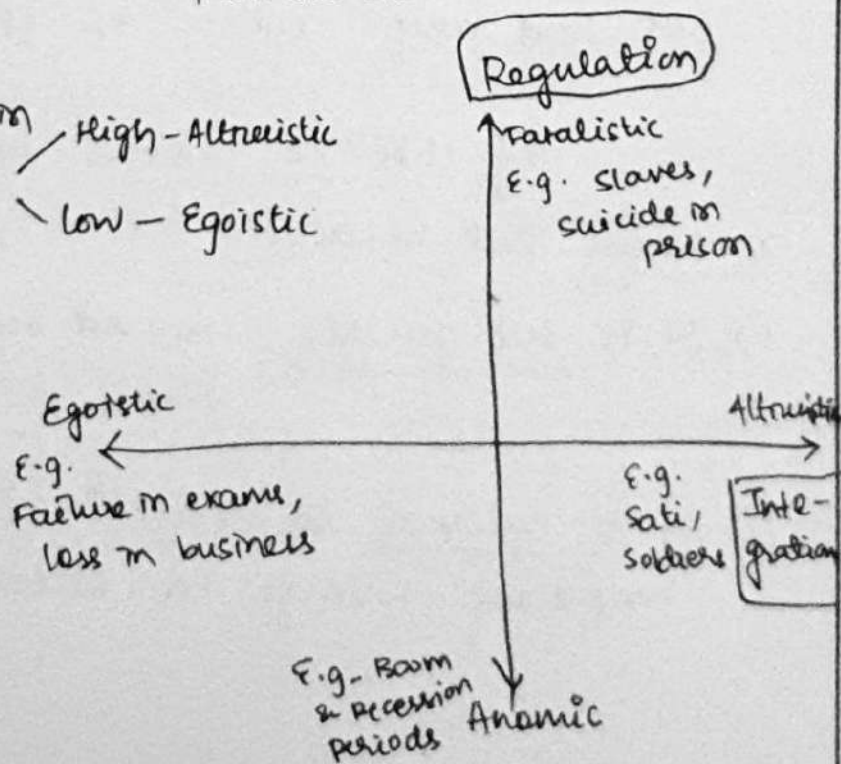 Regulation
High - Altruistic
Low - Egoistic
Fatalistic
E.g. slaves,
suicide in
prison
Egoistic
E.g.
Failure in exams,
loss in business
Altruistic
E.g.
Sati,
Soldiers
Inte-
gration
E.g - Boom
& Recession
periods
Anomic